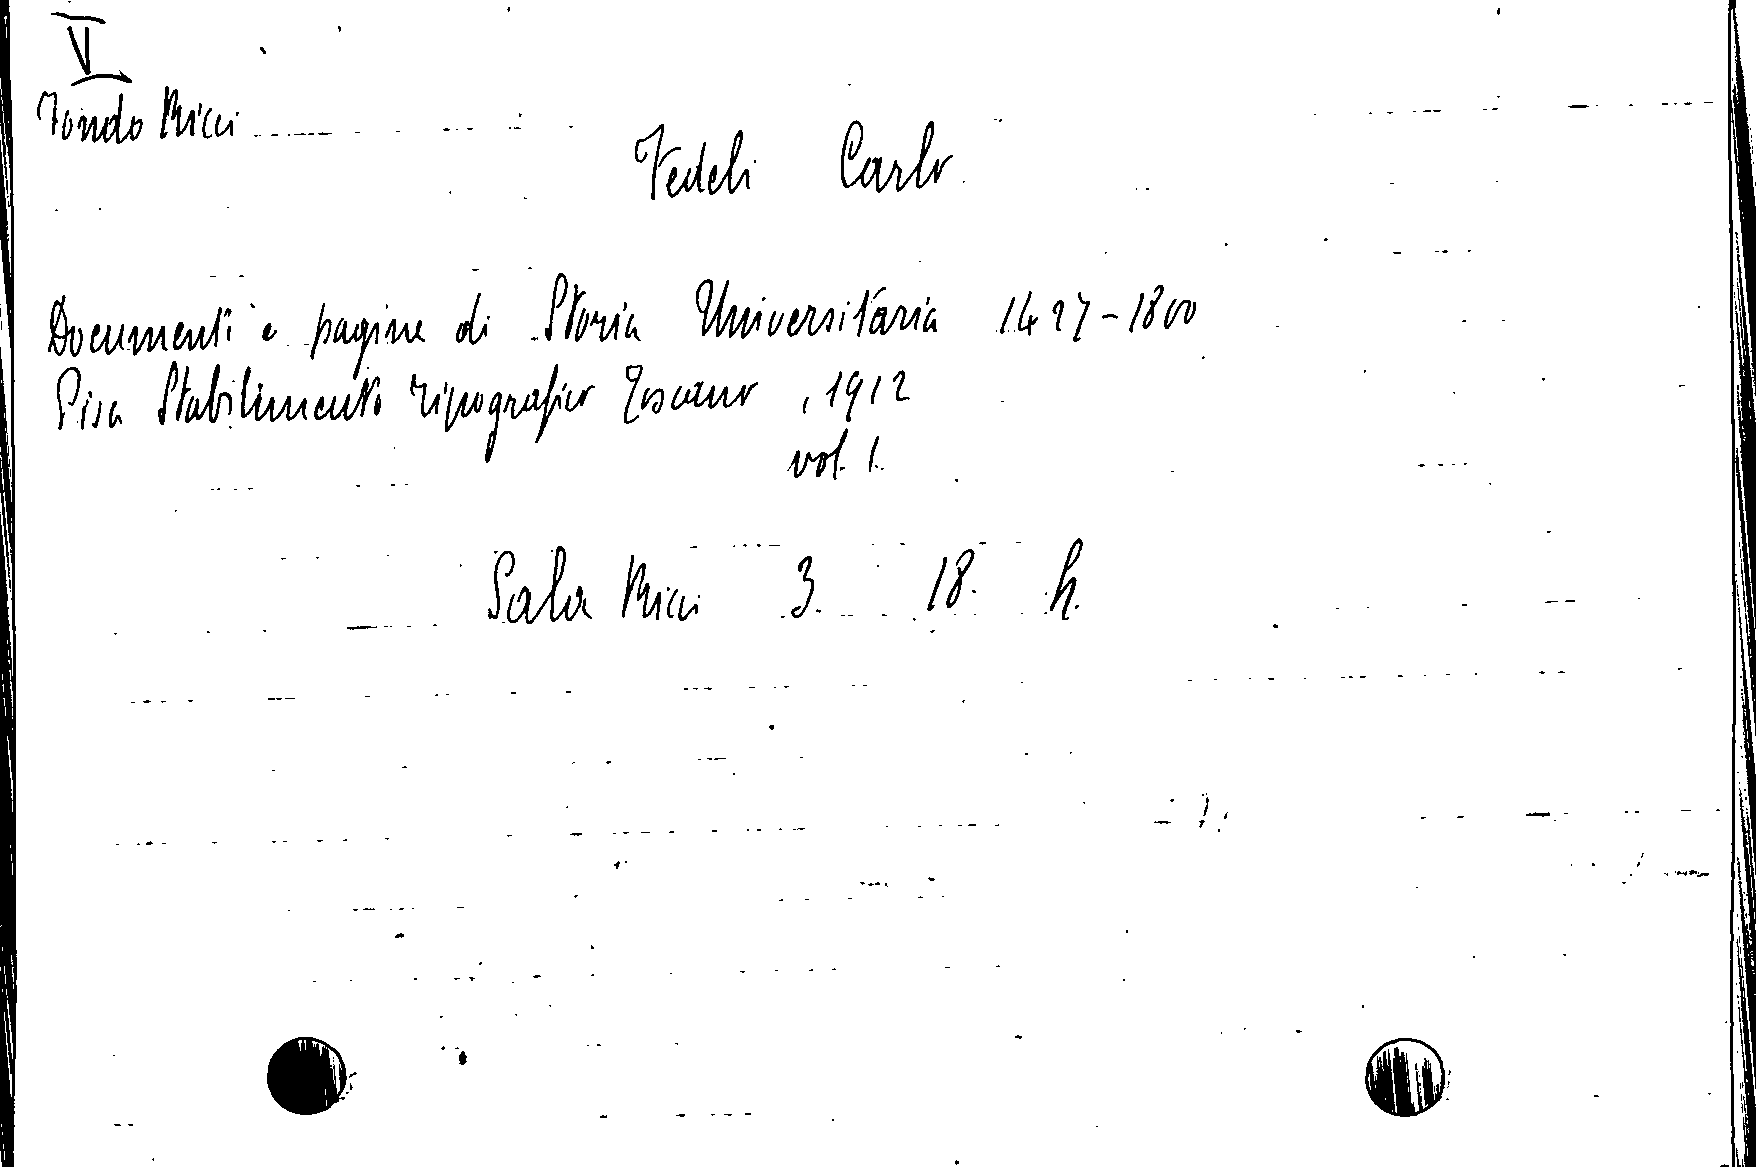 V
Fondo Ricci
Fedeli Carlo
Documenti e pagine di Storia Universitaria 1427-1800
Pisa Stabilimento Tipografico Toscano, 1912
vol. 1.
Sala Ricci 3. 18. h.